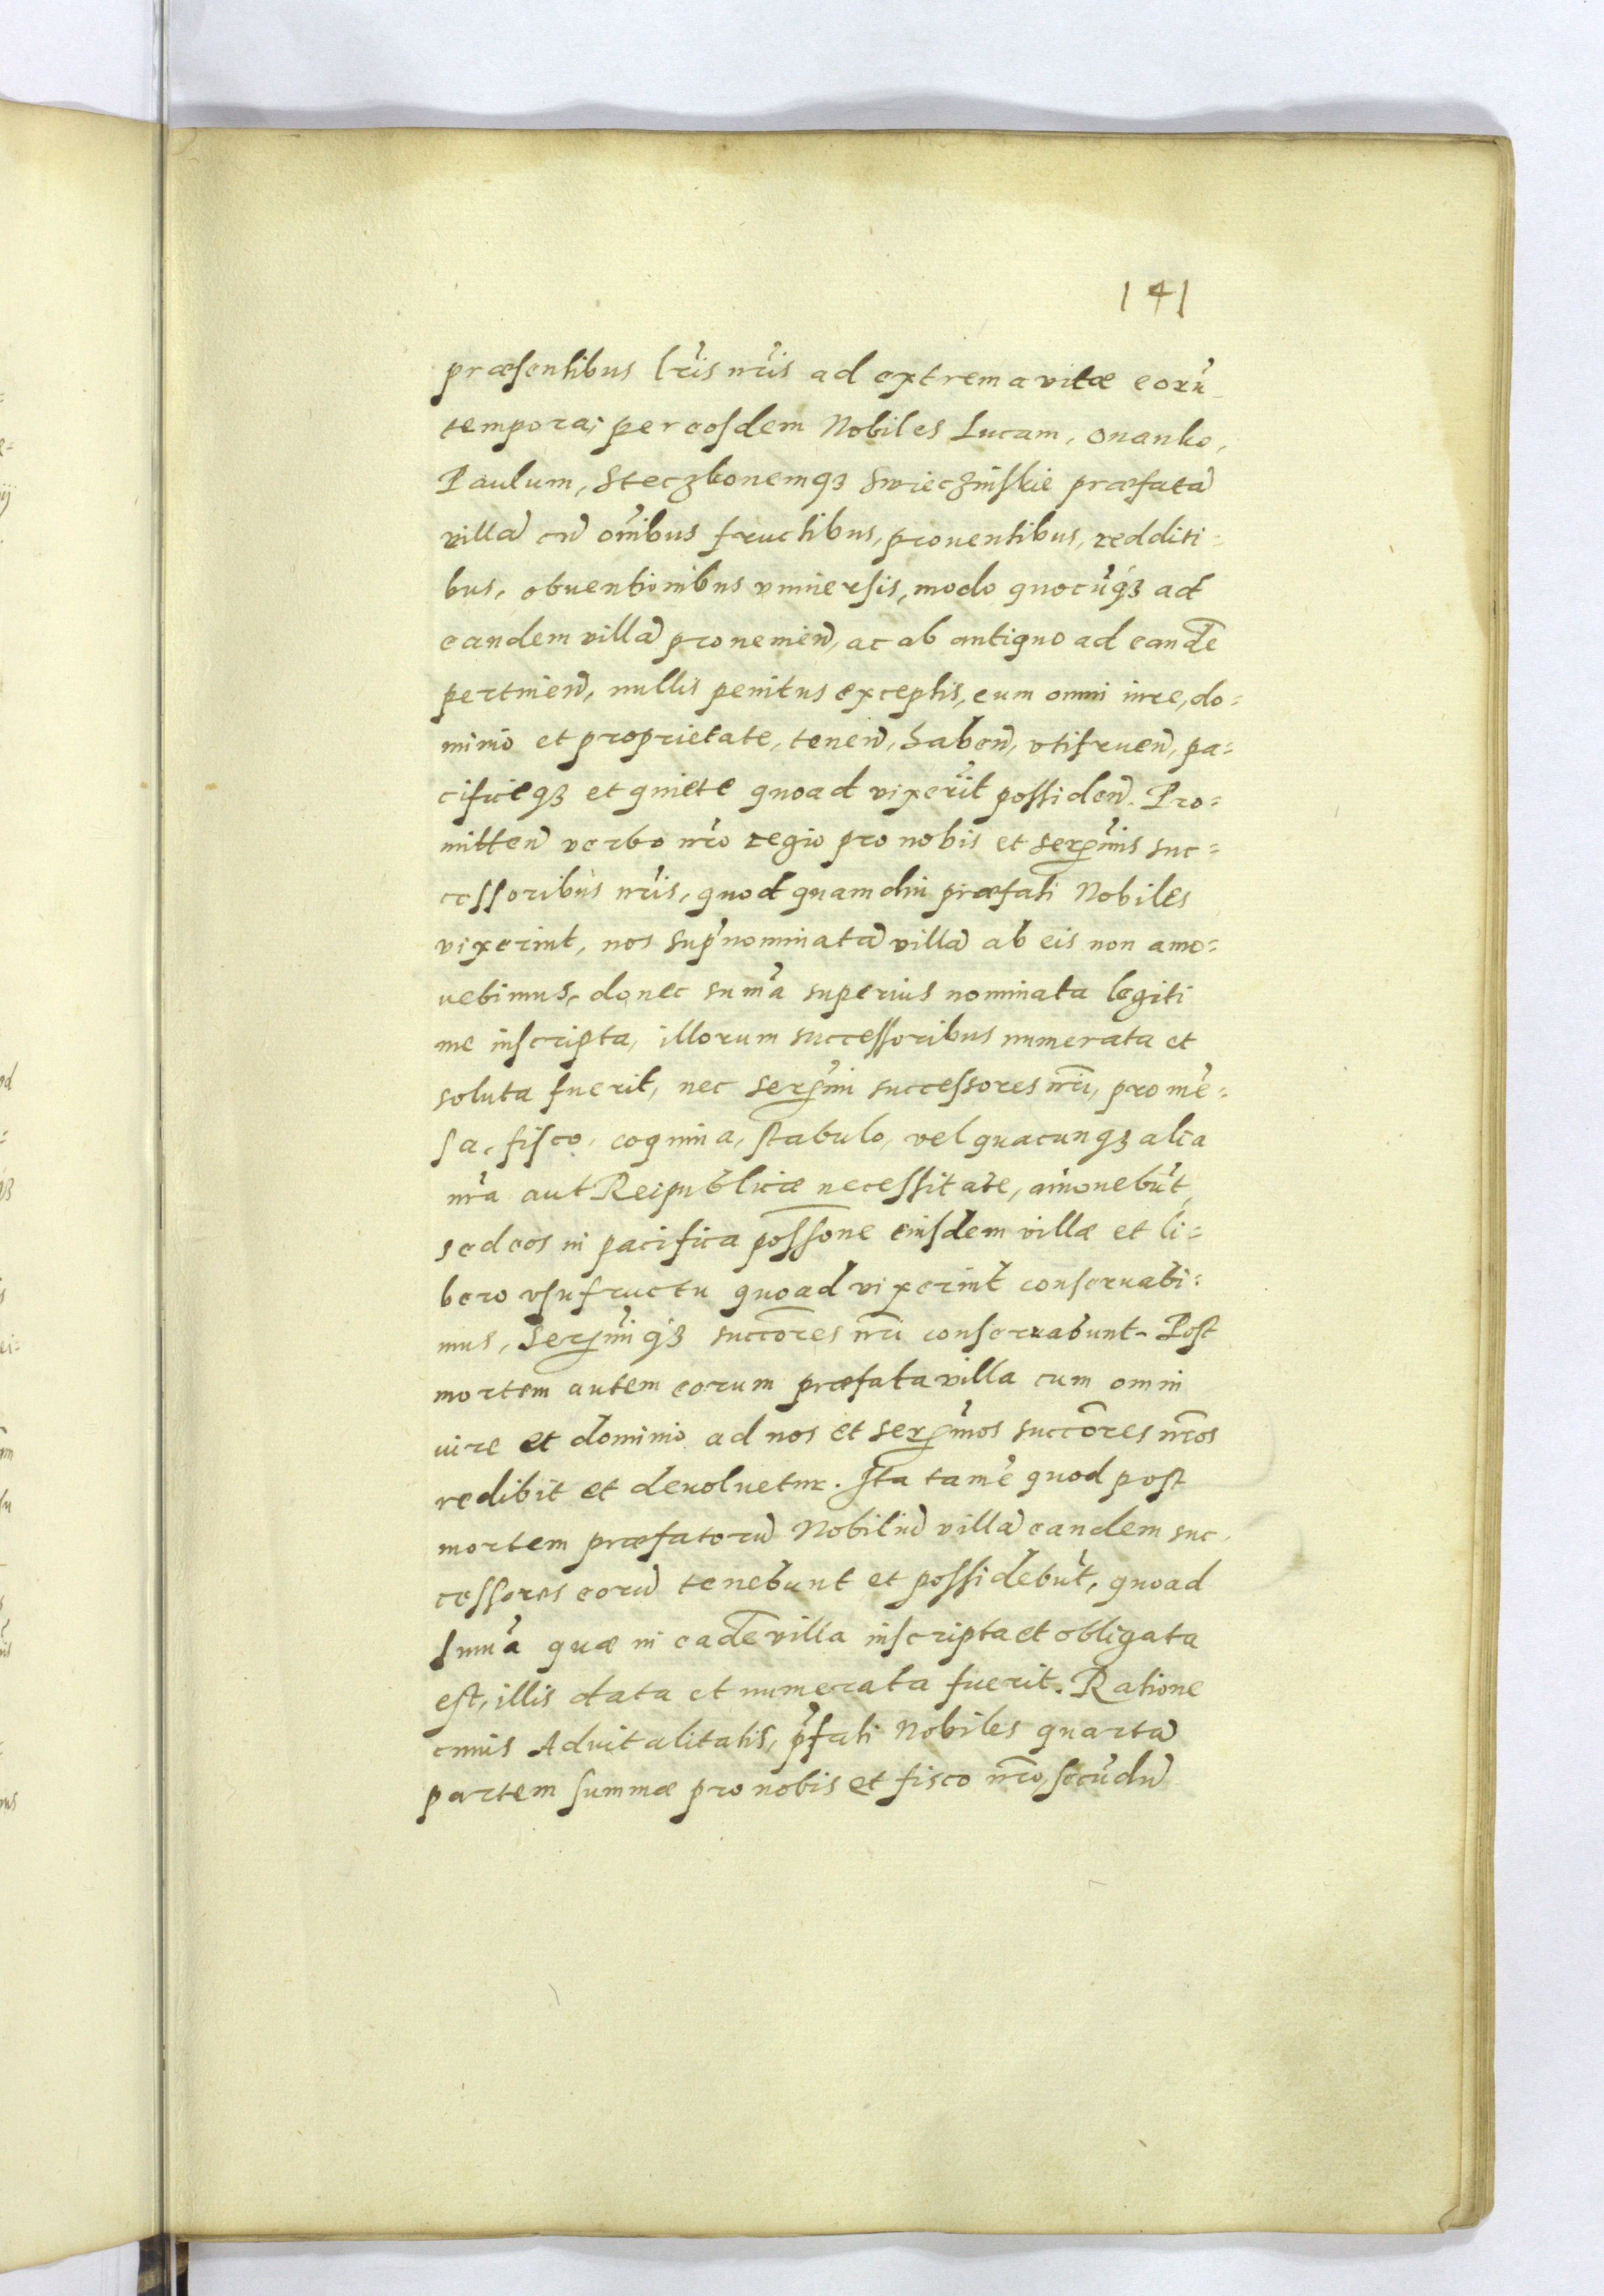 141
præsentibus lr̃is nr̃is ad extrema vitæ eorũ
tempora; per eosdem Nobiles Lucam, Onanko,
Paulum, Steczkonemqȝ Swieczinskie præfatã
villã cũ oĩbus fructibus, prouentibus, redditi=
bus, obuentionibus vniuersis, modo quocũqȝ ad
eandem villã prouenieñ, ac ab antiquo ad eandẽ
pertineñ, nullis penitus exceptis, cum omni iure, do=
minio et proprietate, teneñ, habeñ, vtifrueñ, pa=
cificeqȝ et quiete quoad vixerĩt possideñ. Pro=
mitteñ verbo nr̃o regio pro nobis et serẽmis suc=
cessoribus nr̃is, quod quamdiu præfati Nobiles
vixerint, nos supʼnominatã villã ab eis non amo=
uebimus, donec sum̃a superius nominata legiti
me inscripta, illorum successoribus numerata et
soluta fuerit, nec serẽmi successores nr̃i, pro mẽ=
sa, fisco, coquina, stabulo, vel quacunqȝ alia
nr̃a aut Reipublicæ necessitate, amouebũt,
sed eos in pacifica possõne eiusdem villæ et li=
bero vsufructu quoad vixerint conseruabi=
mus, Serẽmiqȝ succõres nr̃i conseruabunt. Post
mortem autem eorum præfata villa cum omni
iure et dominio ad nos et serẽmos succõres nr̃os
redibit et deuoluetur. Ita tamẽ quod post
mortem præfatorũ Nobiliũ villã eandem suc
cessores eorũ tenebunt et possidebũt, quoad
sum̃a quæ in eadẽ villa inscripta et obligata
est, illis data et numerata fuerit. Ratione
cuius Aduitalitatis, p̃fati Nobiles quartã
partem summæ pro nobis et fisco nr̃o, secũdũ